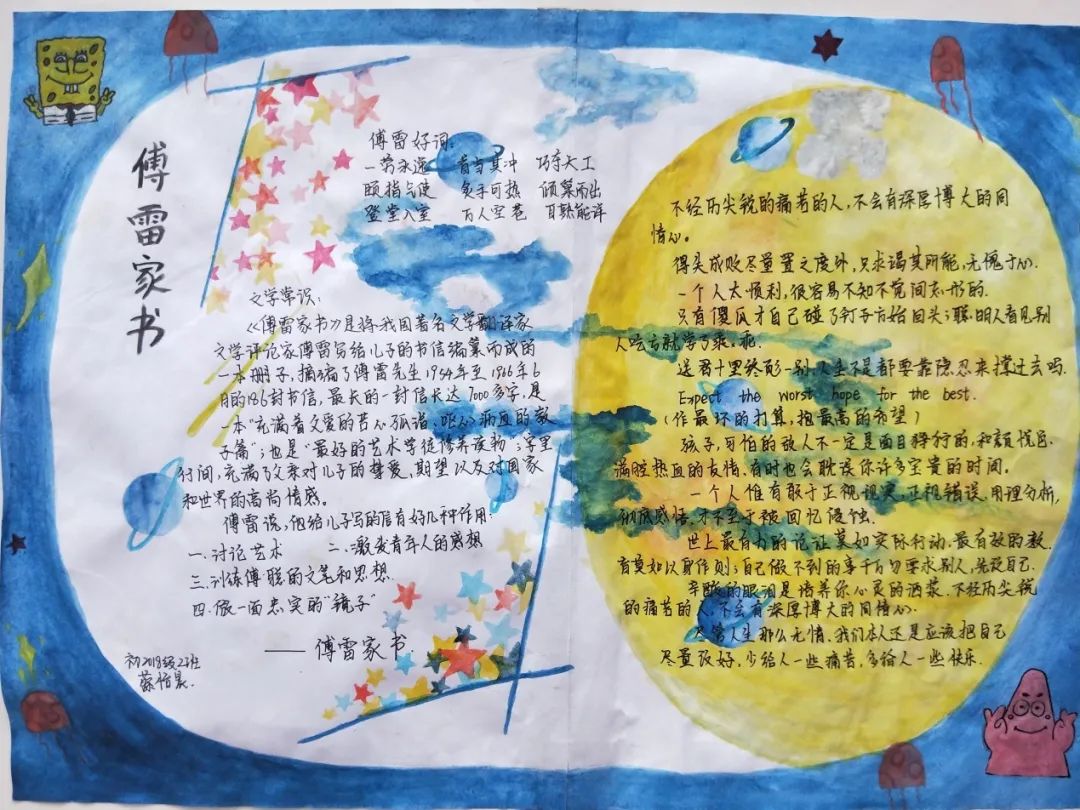 傅雷家书
傅雷好词:
一劳永逸 首当其冲 巧夺天工
颐指气使 炙手可热 倾巢而出
登堂入室 万人空巷 耳熟能详
文学常识:
《傅雷家书》是将我国著名文学翻译家
文学评论家傅雷写给儿子的书信编纂而成的
一本册子,摘编了傅雷先生1954年至1966年6
月的186封书信,最长的一封信长达7000多字,是
一本“充满着父爱的苦心孤诣、呕心沥血的教
子篇”;也是“最好的艺术学徒修养读物”;字里
行间,充满了父亲对儿子的挚爱,期望以及对国家
和世界的高尚情感。
傅雷说,他给儿子写的信有好几种作用:
一.讨论艺术 二.激发青年人的感想
三.训练傅聪的文笔和思想.
四.做一面忠实的“镜子”
——傅雷家书.
初2018级22班
蔡怡晨.
不经历尖锐的痛苦的人,不会有深厚博大的同
情心。
得失成败尽量置之度外,只求竭其所能,无愧于心.
一个人太顺利,很容易不知不觉间忘形的.
只有傻瓜才自己碰了钉子方始回头;聪明人看见别
人吃亏就学了乖.
送君十里终影一别,人生不是都要靠隐忍来撑过去吗.
Expect the worst hope for the best.
(作最坏的打算,抱最高的希望)
孩子,可怕的敌人不一定是面目狰狞的,和颜悦色、
满腔热血的友情,有时也会耽误你许多宝贵的时间。
一个人惟有敢于正视现实,正视错误,用理分析,
彻底感悟,才不至于被回忆侵蚀.
世上最有力的论证莫如实际行动,最有效的教
育莫如以身作则;自己做不到的事千万勿要求别人,先改自己.
辛酸的眼泪是培养你心灵的酒浆.不经历尖锐
的痛苦的人,不会有深厚博大的同情心.
尽管人生那么无情,我们本人还是应该把自己
尽量改好,少给人一些痛苦,多给人一些快乐.